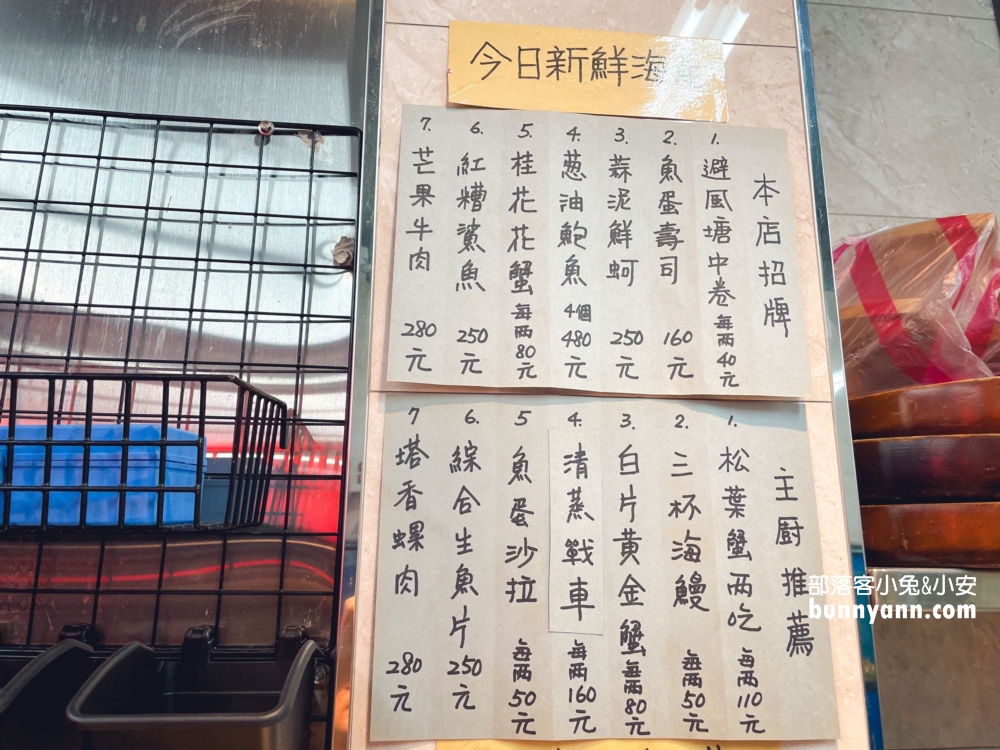 今日新鮮海
本店招牌
1. 避風塘中卷 每兩40元
2. 魚蛋壽司 160元
3. 蒜泥鮮蚵 250元
4. 葱油鮑魚 4個480元
5. 桂花花蟹 每兩80元
6. 紅糟鯊魚 250元
7. 芒果牛肉 280元
主厨推薦
1. 松葉蟹兩吃 每兩110元
2. 三杯海鰻 每兩50元
3. 白片黃金蟹 每兩80元
4. 清蒸戰車 每兩160元
5 魚蛋沙拉 每兩50元
6. 綜合生魚片 250元
7 塔香螺肉 280元
部落客小兔&小安
bunnyann.com